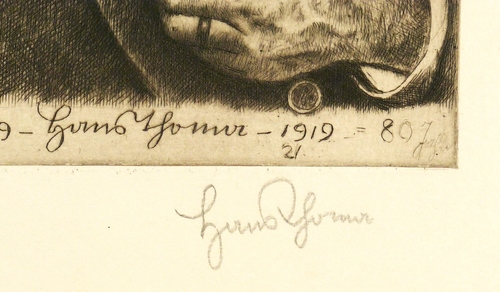 9 - Hans Thoma - 1919 = 80
21
Hans Thoma